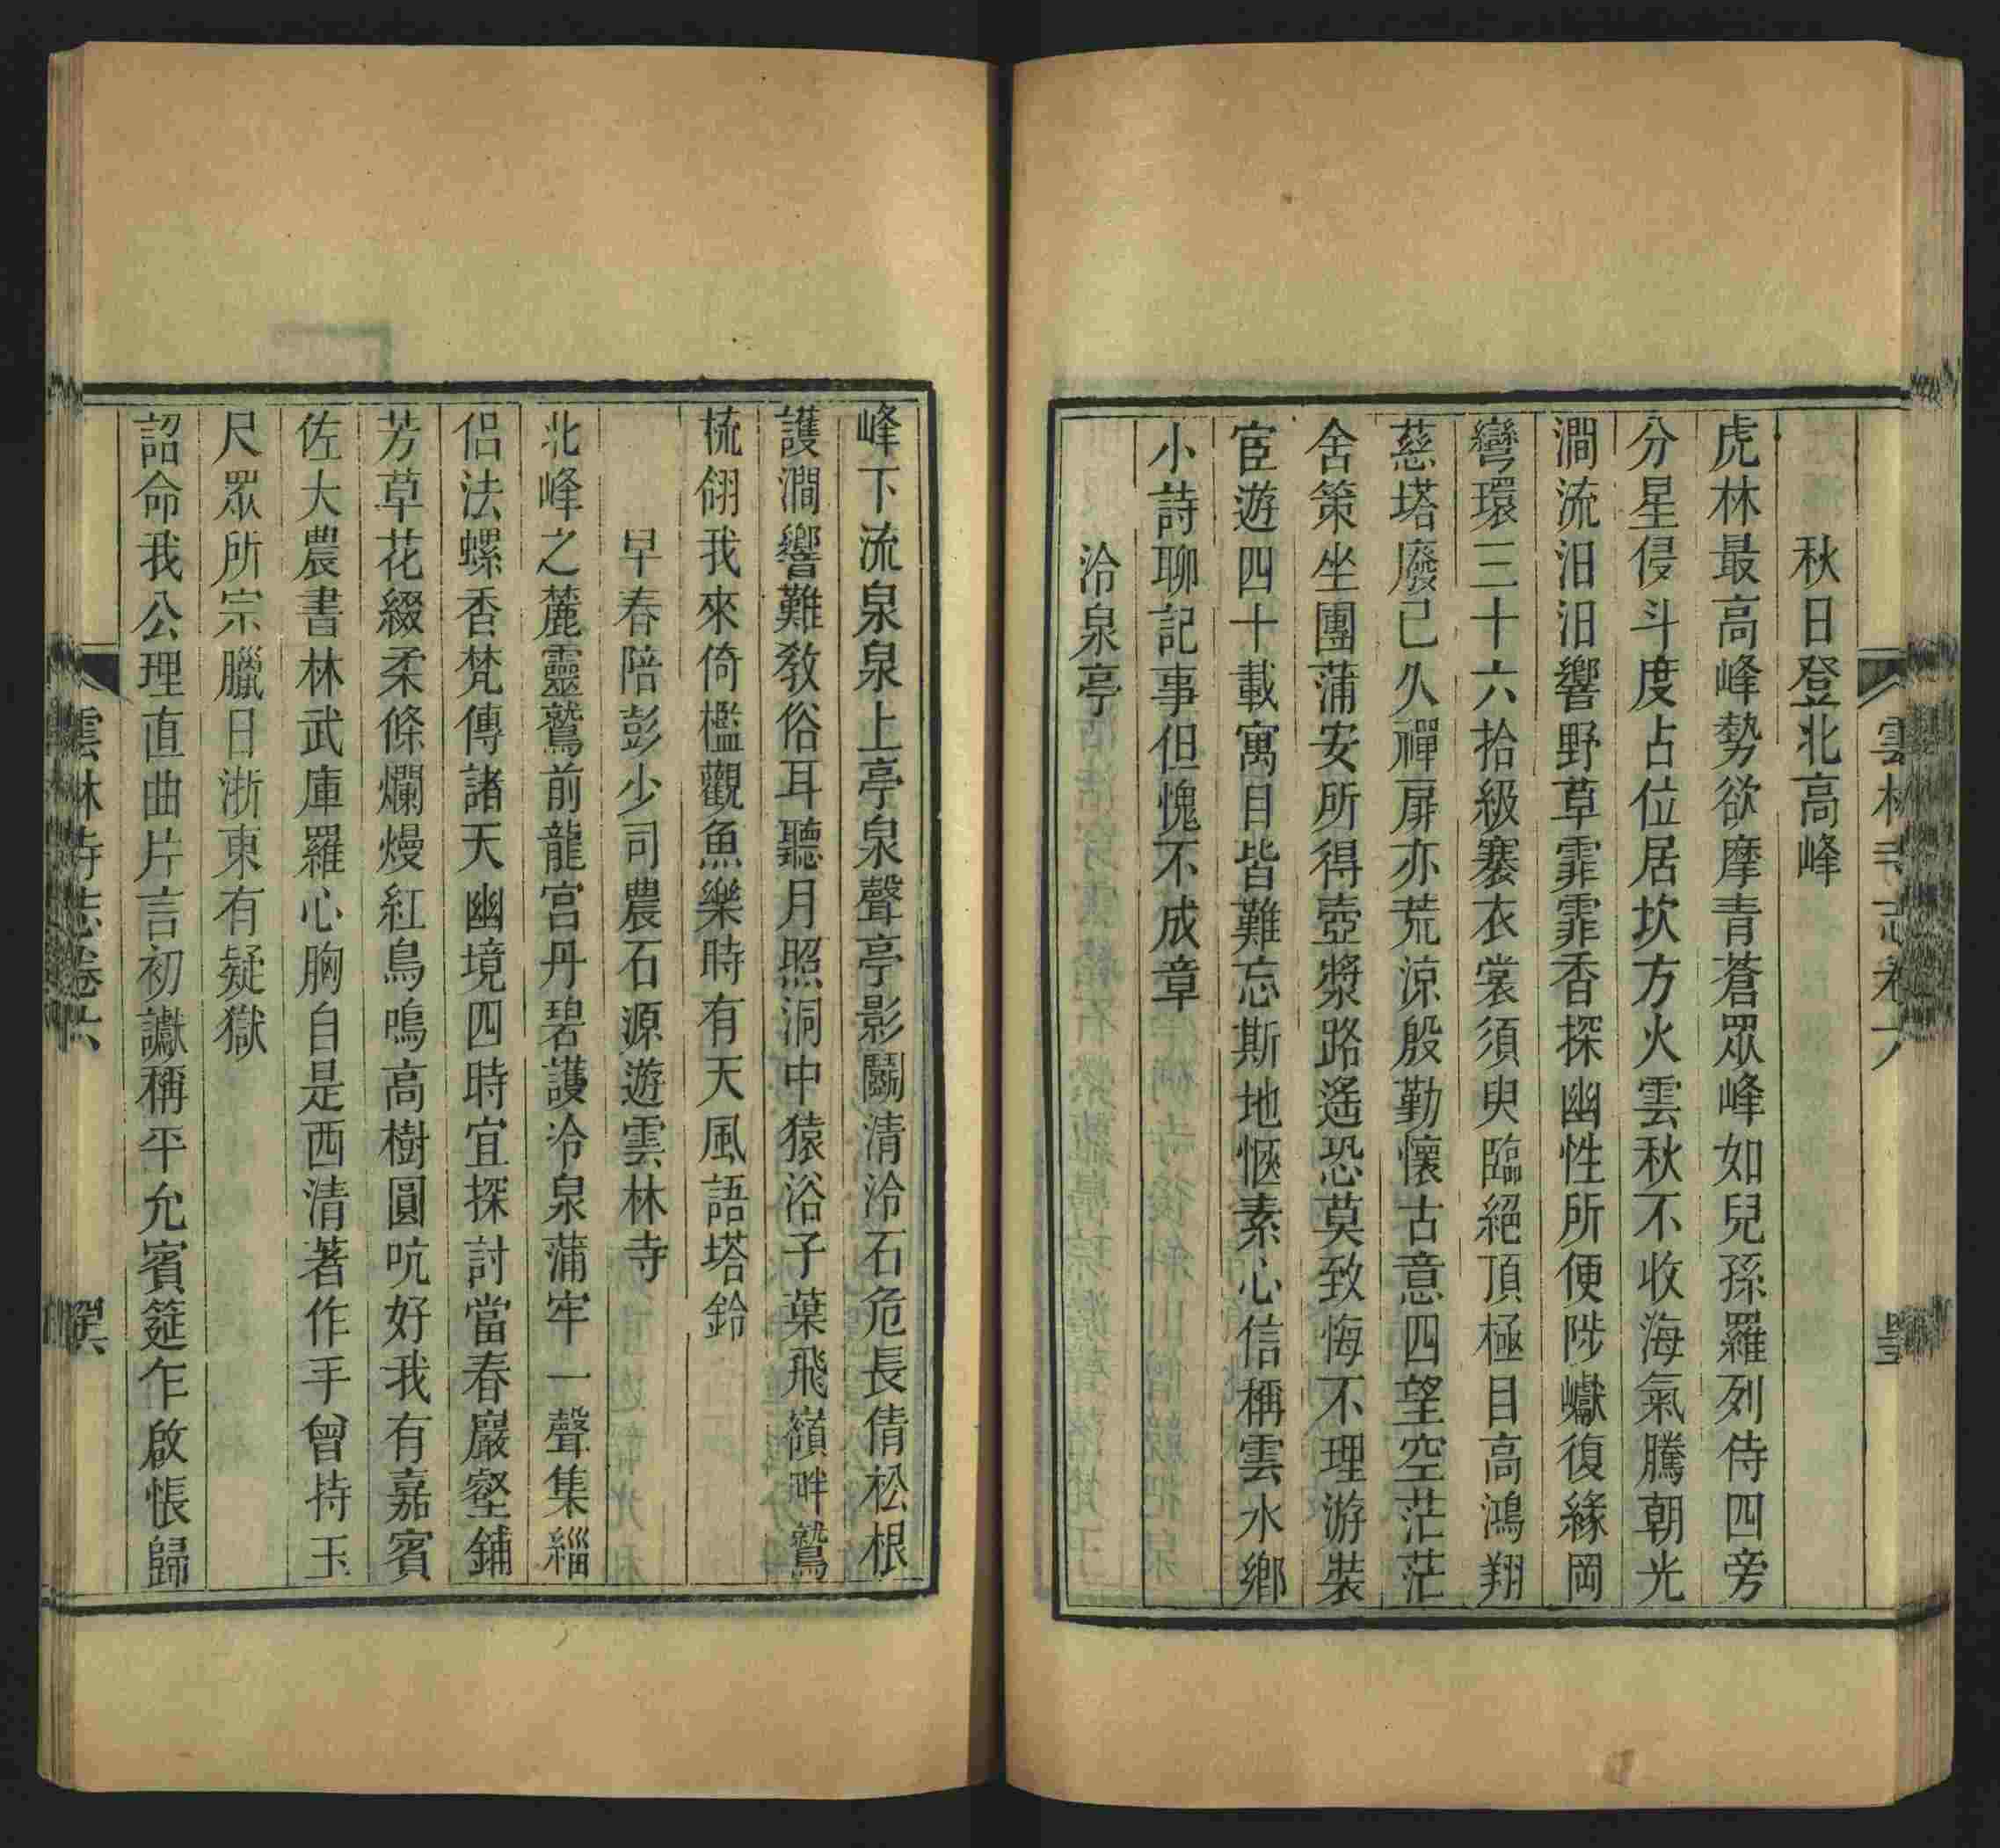 秋日登北高峰
虎林最高峰勢欲摩青蒼眾峰如兒孫羅列侍四旁
分星侵斗度占位居坎方火雲秋不收海氣騰朝光
澗流汨汨響野草霏霏香探幽性所便陟巘復緣岡
彎環三十六拾級褰衣裳須臾臨絕頂極目高鴻翔
慈塔廢已久禪扉亦荒涼殷勤懷古意四望空茫茫
舍策坐團蒲安所得壺漿路遙恐莫致悔不理游裝
宦遊四十載寓目皆難忘斯地愜素心信稱雲水鄉
小詩聊記事但愧不成章
冷泉亭
峰下流泉泉上亭泉聲亭影鬬清泠石危長倩松根
護澗響難教俗耳聽月照洞中猿浴子葉飛嶺畔鷲
梳翎我來倚檻觀魚樂時有天風語塔鈴
早春陪彭少司農石源遊雲林寺
北峰之麓靈鷲前龍宮丹碧護冷泉蒲牢一聲集緇
侶法螺香梵傳諸天幽境四時宜探討當春巖壑鋪
芳草花綴柔條爛熳紅鳥鳴高樹圓吭好我有嘉賓
佐大農書林武庫羅心胸自是西清著作手曾持玉
尺眾所宗臘日浙東有疑獄
詔命我公理直曲片言初讞稱平允賓筵乍啟悵歸
雲林寺志卷六